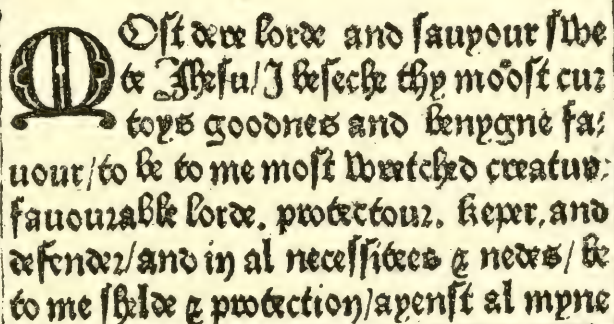 MOst dere lorde and sauyour swe
te Jhesu/I beseche thy moost cur
toys goodnes and benygne fa/
uour/to be to me most wretched creatur,
fauourable lorde. protectour. keper, and
defender/and in al necessitees & nedes/be
to me shelde & protection/ayenst al myne